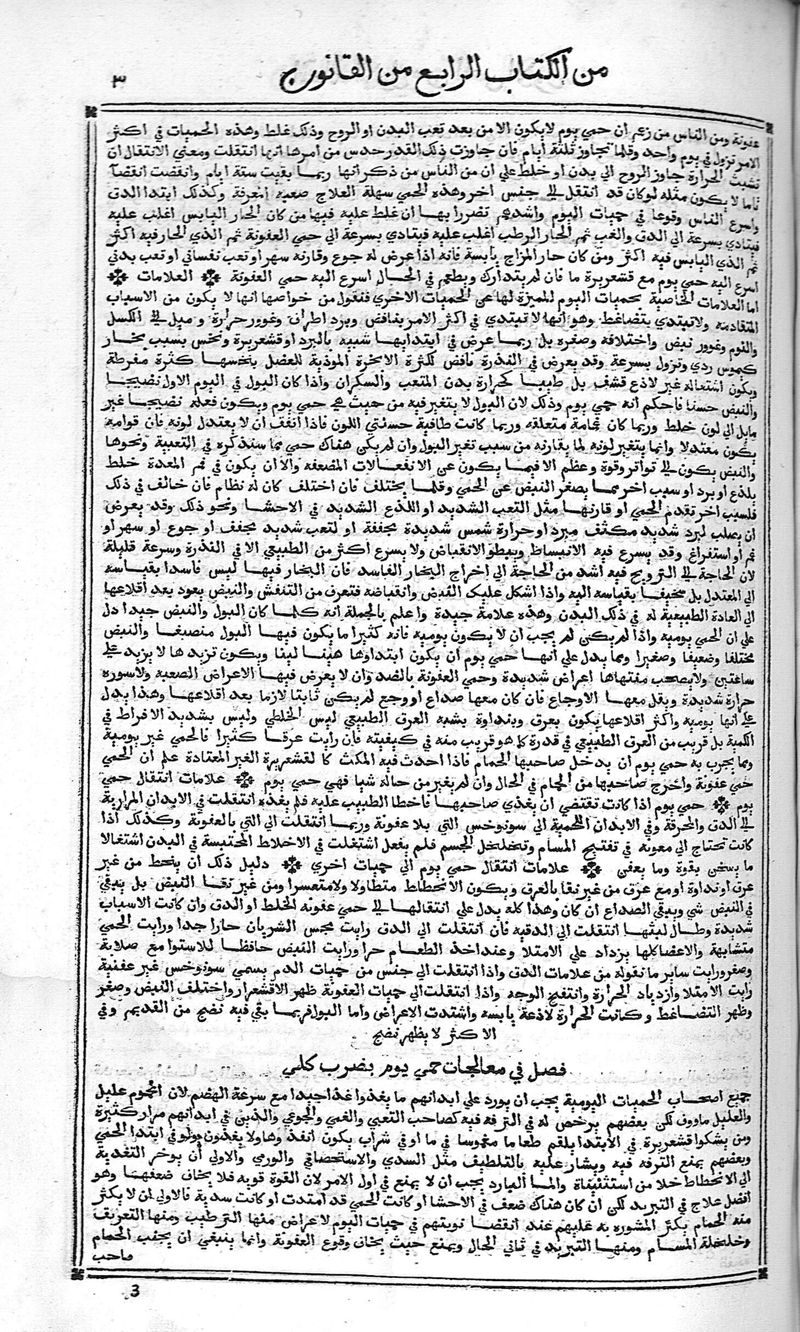 من الكتاب الرابع من القانون ٣
عفونة ومن الناس من زعم ان حمي يوم لا يكون الا من بعد تعب البدن او الروح وذلك غلط وهذه الحميات في اكثر
الامر تزول في يوم واحد وقلما تجاوز ثلثة أيام فان جاوزت ذلك القدر حدس من امرها انها انتقلت ومعني الانتقال ان
تشبث الحرارة جاوز الروح الي بدن او خلط علي ان من الناس من ذكر انها ربما بقيت ستة ايام وانقضت انقضا
تاما لا يكون مثله لو كان قد انتقل الي جنس اخر وهذه الحمي سهلة العلاج صعبه المعرفة وكذلك ابتدا الدق
واسرع الناس وقوعا في حميات اليوم واشدهم تضررا بها ان غلط عليه فيها من كان الحار اليابس اغلب عليه
فيتادي بسرعة الي الدق والغب ثم الحار الرطب اغلب عليه فيتادي بسرعة الي حمي العفونة ثم الذي الحار فيه اكثر
ثم الذي اليابس فيه اكثر ومن كان حار المزاج يابسه فانه اذا عرض له جوع وقارنه سهر او تعب نفساني او تعب بدني
اسرع اليه حمي يوم مع قشعريرة ما فان لم يتدارك ويطعم في الحال اسرع اليه حمي العفونة العلامات
اما العلامات الخاصية بحميات اليوم المميزة لها عن الحميات الاخري فنقول من خواصها انها لا يكون من الاسباب
المتقادمة ولا تبتدي بتضاغط وهو انها لا تبتدي في اكثر الامر بنافض وبرد اطراف وغوور حرارة وميل الي الكسل
والنوم وغوور نبض واختلافه وصغره بل ربما عرض في ابتدايها شبيه بالبرد او قشعريرة ونخس بسبب بخار
كيموس ردي وتزول بسرعة وقد يعرض في الندرة نافض لكثرة الابخرة الموذية للعضل بنخسها كثرة مفرطة
ويكون اشتعاله غير لاذع قشف بل طيبا كحرارة بدن المتعب والسكران واذا كان البول في اليوم الاول نضيجا
والنبض حسنا فاحكم انه حمي يوم وذلك لان البول لا يتغير فيه من حيث هي حمي يوم ويكون فعله نضيجا غير
مايل الي لون خلط وربما كان غمامة متعلقه وربما كانت طافية حسنتي اللون فاذا اتفق ان لا يعتدل لونه فان قوامه
يكون معتدلا وانما يتغير لونه لما يقارنه من سبب تغير البول وان لم يكن هناك حمي مما سنذكره في التعبية ونحوها
والنبض يكون الي تواتر وقوة وعظم الا فيما يكون عن الانفعالات المضعفه والا ان يكون في فم المعدة خلط
يلذع او برد او سبب اخر مما يصغر النبض عن الحمي وقلما يختلف فان اختلف كان له نظام فان خالف في ذلك
فلسبب اخر تقدم الحمي او قارنها مثل التعب الشديد او اللذع الشديد في الاحشا ونحو ذلك وقد يعرض
ان يصلب لبرد شديد مكثف مبرد او حرارة شمس شديدة مجففة او لتعب شديد مجفف او جوع او سهر او
غم او استفراغ وقد يسرع فيه الانبساط ويبطو الانقباض ولا يسرع اكثر من الطبيعي الا في الندرة وسرعة قليلة
لان الحاجة الي الترويح فيه اشد من الحاجة الي اخراج البخار الفاسد فان البخار فيها ليس فاسدا بقياسه
الي المعتدل بل سخينا بقياسه اليه واذا اشكل عليك القبض وانقباضه فتعرف من التنفس والنبض يعود بعد اقلاعها
الي العادة الطبيعية له في ذلك البدن وهذه علامة جيدة واعلم بالجملة انه كلما كان البول والنبض جيدا دل
علي ان الحمي يومية واذا لم يكن لم يجب ان لا يكون يومية فانه كثيرا ما يكون فيها البول منصبغا والنبض
مختلفا وضعيفا وصغيرا ومما يدل علي انها حمي يوم ان يكون ابتداوها هينا لينا ويكون تزيدها لا يزيد علي
ساعتين ولا يصحب منتهاها اعراض شديدة وحمي العفونة بالضد وان لا يعرض فيها الاعراض الصعبه ولا سوره
حرارة شديدة ويقل معها الاوجاع فان كان معها صداع او وجع لم يكن ثابتا لازما بعد اقلاعها وهذا يدل
علي انها يومية واكثر اقلاعها يكون بعرق وبنداوة يشبه العرق الطبيعي ليس الخلطي وليس بشديد الافراط في
الكمية بل قريب من العرق الطبيعي في قدرة كما هو قريب منه في كيفيته فان رايت عرقا كثيرا فالحمي غير يومية
ومما يجرب به حمي يوم ان يدخل صاحبها الحمام فاذا احدث فيه المكث كالقشعريرة الغير المعتادة علم ان الحمي
حمي عفونة واخرج صاحبها من الحمام في الحال وان لم يغير من حاله شيا فهي حمي يوم علامات انتقال حمي
يوم حمي يوم اذا كانت تقتضي ان يغذي صاحبها فاخطا الطبيب عليه فلم يغذه انتقلت في الابدان المرارية
الي الدق والمحرقة وفي الابدان اللحمية الي سونوخس التي بلا عفونة وربما انتقلت الي التي بالعفونة وكذلك اذا
كانت تحتاج الي معونة في تفتيح المسام وتخلخل الجسم فلم يفعل اشتعلت في الاخلاط المحتبسة في البدن اشتعالا
ما يسخن بقوة وما يعفن علامات انتقال حمي يوم الي حميات اخري دليل ذلك ان ينحط من غير
عرق او نداوة او مع عرق من غير نقا بالعرق ويكون الانحطاط متطاولا ولا متعسرا ومن غير نقا النبض بل يبقي
في النبض شي ويبقي الصداع ان كان وهذا كله يدل علي انتقالها الي حمي عفونه الخلط او الدق وان كانت الاسباب
شديدة وطال لبثها انتقلت الي الدقيه فان انتقلت الي الدق رايت مجس الشريان حارا جدا ورايت الحمي
متشابهة والاعضا كلها يزداد علي الامتلا وعند اخذ الطعام حرا ورايت النبض حافظا للاستوا مع صلابة
وصغر ورايت ساير ما نقوله من علامات الدق واذا انتقلت الي جنس من حميات الدم يسمي سونوخس غير عفنية
رايت الامتلا وازدياد الحرارة وانتفخ الوجه واذا انتقلت الي حميات العفونة ظهر الاقشعرار واختلف النبض وصغر
وظهر التضاغط وكانت الحرارة لاذعة يابسه واشتدت الاعراض واما البول فربما بقي فيه نضج من القديم وفي
الاكثر لا يظهر نضج
فصل في معالجات حمي يوم بضرب كلي
جميع اصحاب الحميات اليومية يجب ان يورد علي ابدانهم ما يغذوا غذا جيدا مع سرعة الهضم لان المحموم عليل
والعليل ماووف لكن بعضهم يرخص له في الترفه فيه كصاحب التعبي والغمي والجوعي والذين في ابدانهم مرار كثيرة
ومن يشكوا قشعريرة في الابتدا يلقم طعاما مغموسا في ما او في شراب يكون انفذ وهاولا يغذون ولو في ابتدا الحمي
وبعضهم يمنع الترفه فيه ويشار عليه بالتلطيف مثل السدي والاستحصافي والورمي والاولي ان يوخر التغذية
الي الانحطاط خلا من استثنيناه والما البارد يجب ان لا يمنع في اول الامر لان القوة قويه فلا يخاف ضعفها وهو
افضل علاج في التبريد لكن ان كان هناك ضعف في الاحشا او كانت الحمي قد امتدت او كانت سدية فالاولي ان لا يكثر
منه الحمام يكثر المشوره به عليهم عند انقضا نوبتهم في حميات اليوم لاعراض منها الترطيب ومنها التعريق
وخلخلة المسام ومنها التبريد في ثاني الحال ويمنع حيث يخاف وقوع العفونة وانما ينبغي ان يجنب الحمام
صاحب
3